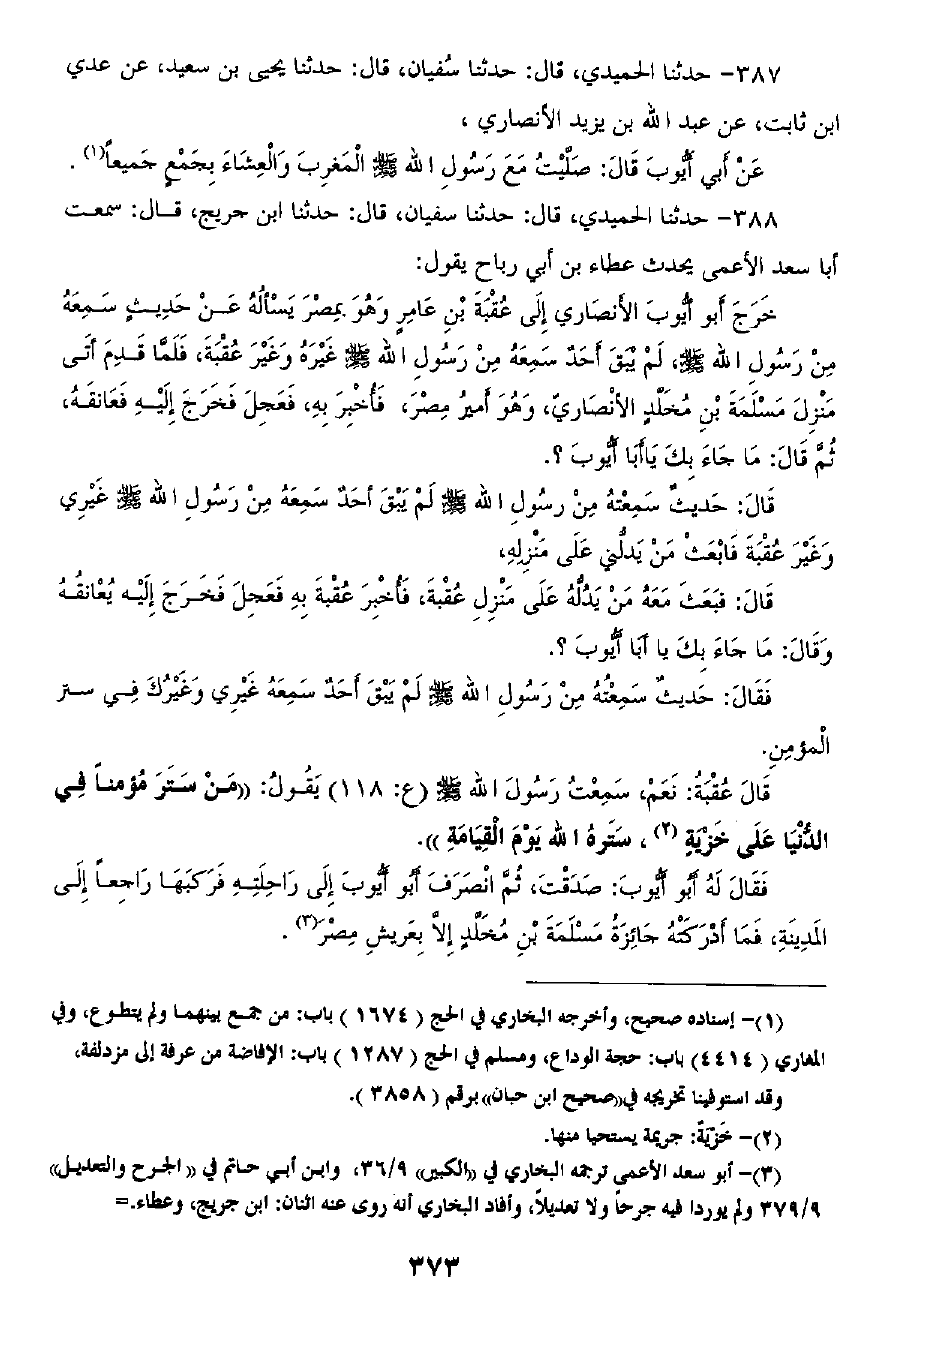 ٣٨٧- حدثنا الحميدي، قال: حدثنا سُفيان، قال: حدثنا يحيى بن سعيد، عن عدي
ابن ثابت، عن عبد الله بن يزيد الأنصاري ،
عَنْ أبي أَيُّوبَ قَالَ: صَلَّيْتُ مَعَ رَسُولِ الله ﷺ الْمَغرِبَ وَالْعِشَاءَ بِجَمْعٍ جَميعاً(١) .
٣٨٨- حدثنا الحميدي، قال: حدثنا سفيان، قال: حدثنا ابن جريج، قـال: سمعت
أبا سعد الأعمى يحدث عطاء بن أبي رباح يقول:
خَرَجَ أبو أَيُّوبَ الأَنصَاري إلَى عُقْبَةَ بْنِ عَامِرٍ وَهُوَ بِمِصْرَ يَسْأَلُهُ عَـنْ حَديـثٍ سَـمِعَهُ
مِنْ رَسُولِ الله ﷺ، لَمْ يَبْقَ أَحَدٌ سَمِعَهُ مِنْ رَسُولِ الله ﷺ غَيْرُهُ وَغَيْرَ عُقْبَةَ، فَلَمَّا قَـدِمَ أَتَى
مَنْزِلَ مَسْلَمَةَ بْنِ مُخَلَّدٍ الأنْصَاريّ، وَهُوَ أَميرُ مِصْرَ، فَأُخْبِرَ بِهِ، فَعَجِلَ فَخَرَجَ إلَيْـهِ فَعَانَقَـهُ،
ثُمَّ قَالَ: مَا جَاءَ بِكَ يَاأَبَا أَيُّوبَ ؟.
قَالَ: حَديثٌ سَمِعْتهُ مِنْ رسُولِ الله ﷺ لَمْ يَبْقَ أحَدٌ سَمِعَهُ مِنْ رَسُولِ الله ﷺ غَيْرِي
وَغَيْرَ عُقْبَةَ فَابْعَثْ مَنْ يَدلُّني عَلَى مَنْزِلِهِ،
قَالَ: فَبَعَثَ مَعَهُ مَنْ يَدُلُّهُ عَلَى مَنْزِلِ عُقْبةَ، فَأُخْبِرَ عُقْبةَ بِهِ فَعَجِلَ فَخَـرَجَ إلَيْـه يُعْانقُـهُ
وَقَالَ: مَا جَاءَ بِكَ يا أَبَا أَيُّوبَ ؟.
فَقَالَ: حَدِيثٌ سَمِعْتُهُ مِنْ رَسُولِ الله ﷺ لَمْ يَبْقَ أَحَدٌ سَمِعَهُ غَيْرِي وَغَيْرُكَ فِـي سـتر
الْمؤمِنِ.
قَالَ عُقْبَةُ: نَعَمْ، سَمِعْتُ رَسُولَ الله ﷺ (ع: ١١٨) يَقُولُ: ((مَـنْ سـَتَرَ مُؤمنـاً فِـي
الدُّنْيَا عَلَى خَزْيَةٍ (٢)، سَتَرهُ الله يَوْمَ الْقِيَامَةِ )).
فَقَالَ لَهُ أَبو أَيُّوبَ: صَدَقْتَ، ثُمَّ انْصَرَفَ أَبُو أَيُّوبَ إلَى رَاحِلَتِـهِ فَرَكبَهَـا رَاجعـاً إلَـى
الْمَدِينَةِ، فَمَا أَدْرَكَتْهُ جَائِزَةُ مَسْلَمَةَ بْنِ مُخَلَّدٍ إلاَّ بِعَرِيشِ مِصْرَ(٣) .
(١)- إسناده صحيح، وأخرجه البخاري في الحج ( ١٦٧٤ ) باب: من جمع بينهمـا ولم يتطـوع، وفي
المغاري ( ٤٤١٤) باب: حجة الوداع، ومسلم في الحج ( ١٢٨٧ ) باب: الإفاضة من عرفة إلى مزدلفة،
وقد استوفينا تخريجه في((صحيح ابن حبان))برقم ( ٣٨٥٨ ).
(٢)- خَزْيَةٌ: جريمة يستحيا منها.
(٣)- أبو سعد الأعمى ترجمه البخاري في ((الكبير)) ٣٦/٩، وابـن أبـي حـاتم في (( الجـرح والتعديـل))
٣٧٩/٩ ولم يوردا فيه جرحاً ولا تعديلاً، وأفاد البخاري أنه روى عنه اثنان: ابن جريج، وعطاء.=
٣٧٣